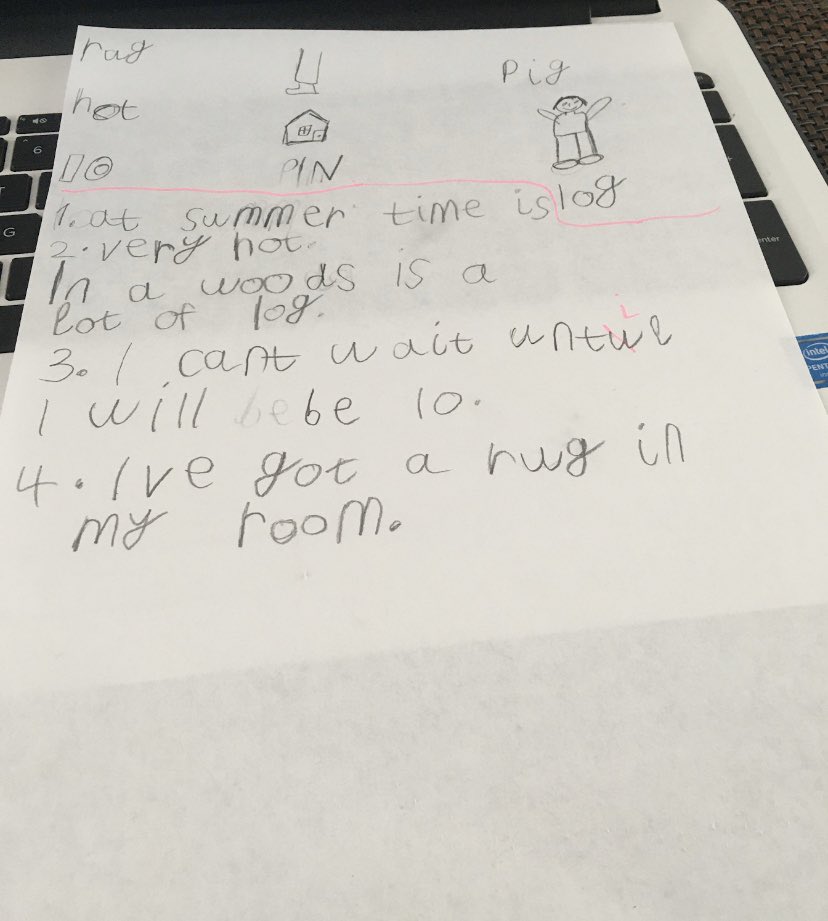 rug Pig
hot
10 PIN log
1. at summer time is
2. very hot.
In a woods is a
lot of log.
3. I cant wait until
I will be be 10.
4. Ive got a rug in
my room.
6
G
enter
intel
PENT